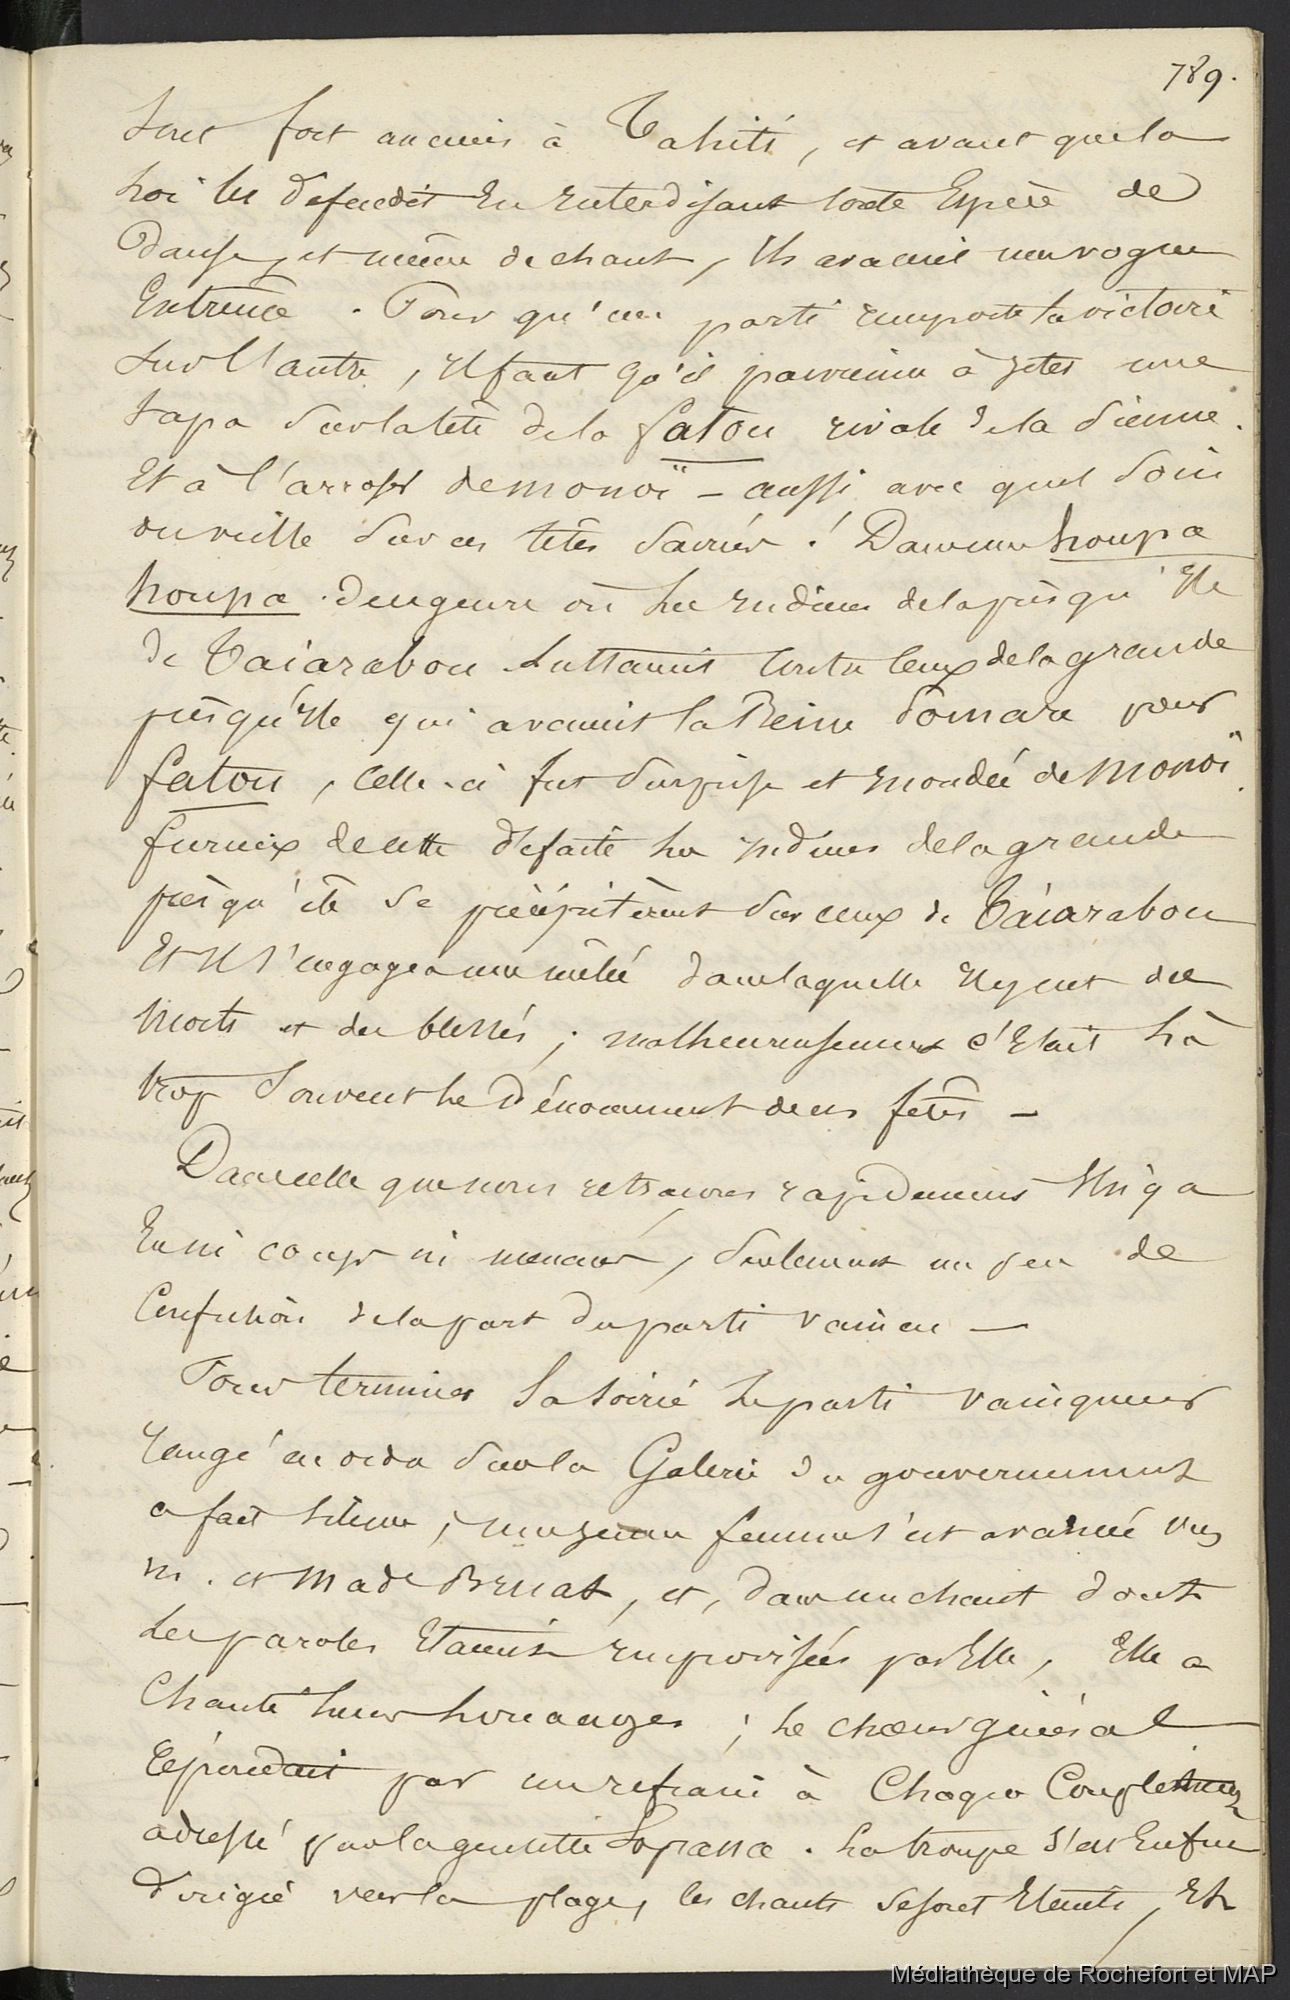 789.
sont fort anciens à Tahiti, et avant que la
loi les défendit en interdisant toute espèce de
danse, et même de chant, ils avaient une vogue
extrême. Pour qu'un parti remporte la victoire
sur l'autre, il faut qu'il parvienne à jeter une
tapa sur la tête de la fatou rivale de la sienne.
et à l'arroser de monoï — aussi avec quel soin
on veille sur ces têtes sacrées ! Dans une houpa
houpa de ce genre où les indiens de la presqu'ile
de Taiarabou luttaient contre ceux de la grande
presqu'ile qui avaient la Reine Pomare pour
fatou, celle-ci fut surprise et inondée de monoï.
furieux de cette défaite les indiens de la grande
presqu'ile se précipitèrent sur ceux de Taiarabou
et il s'engagea une mêlée dans laquelle il y eut des
morts et des blessés ; malheureusement c'était là
trop souvent le dénouement de ces fêtes —
Dans celle que nous retraçons rapidement il n'y a
eu ni coups ni menaces, seulement un peu de
confusion de la part du parti vaincu —
Pour terminer la soirée le parti vainqueur
rangé en ordre sur la Galerie du gouvernement
a fait silence ; une jeune femme s'est avancée vers
M. et Made Bruat, et, dans un chant dont
les paroles étaient improvisées par elle, elle a
chanté leurs louanges ; le chœur général
répondait par un refrain à chaque couplet
adressé par la gentille Soprano. La troupe s'est enfin
dirigée vers la plage, les chants se sont éteints, et
Médiathèque de Rochefort et MAP